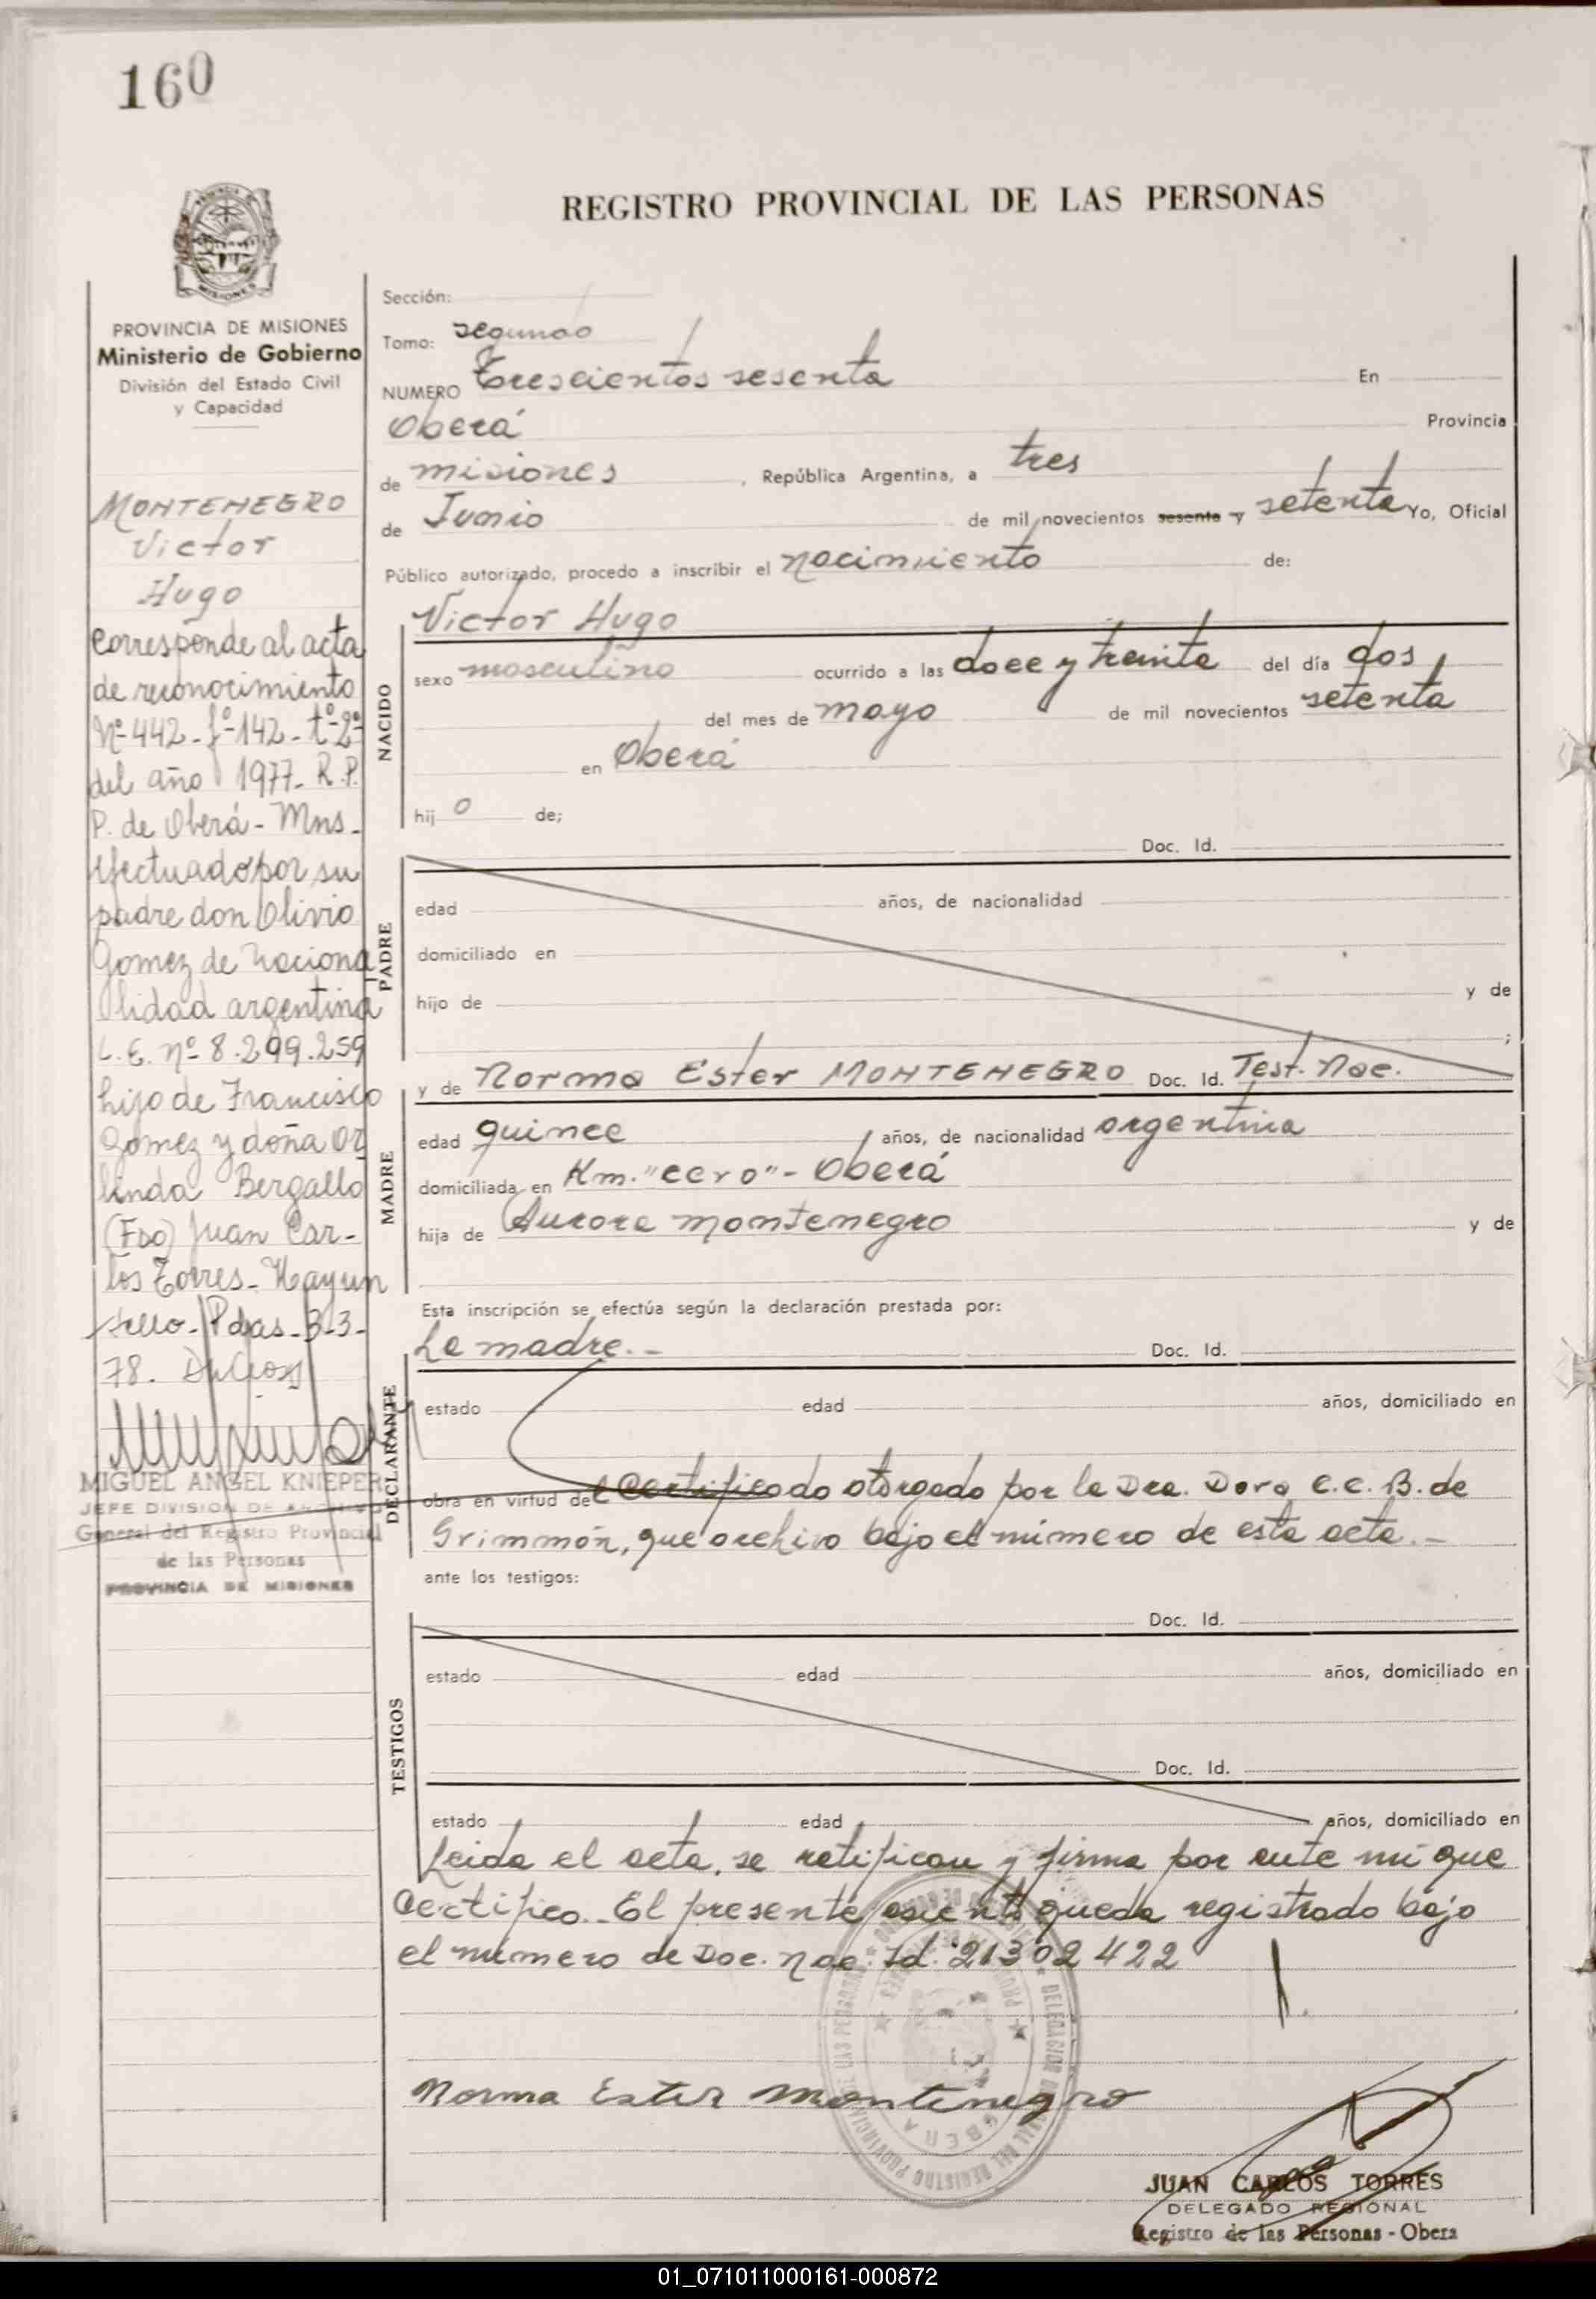 160
REGISTRO PROVINCIAL DE LAS PERSONAS
PROVINCIA DE MISIONES
Ministerio de Gobierno
División del Estado Civil
y Capacidad
MONTENEGRO
Victor
Hugo
Corresponde al acta
de reconocimiento
Nº 442 - fº 142 - tº 2º
del año 1977 - R.P.
P. de Oberá - Mns -
efectuado por su
padre don Olivio
Gomez de naciona
lidad argentina
L.E. nº 8.299.259
hijo de Francisco
Gomez y doña Or
linda Bergallo
(Fdo) Juan Car-
los Torres - Hay un
sello - Pdas - 3-3-
78.
MIGUEL ANGEL KNIEPER
JEFE DIVISION DE ARCHIVO
General del Registro Provincial
de las Personas
PROVINCIA DE MISIONES
Sección:
Tomo: segundo
NUMERO Trescientos sesenta En
Oberá Provincia
de misiones , República Argentina, a tres
de Junio de mil novecientos sesenta y setenta Yo, Oficial
Público autorizado, procedo a inscribir el nacimiento de:
NACIDO
Victor Hugo
sexo masculino ocurrido a las doce y treinta del día dos
del mes de mayo de mil novecientos setenta
en Oberá
hij o de;
PADRE
Doc. Id.
edad años, de nacionalidad
domiciliado en
hijo de y de
;
MADRE
y de Norma Ester MONTENEGRO Doc. Id. Test. Nac.
edad quince años, de nacionalidad argentina
domiciliada en Km. "cero" - Oberá
hija de Aurora montenegro y de
Esta inscripción se efectúa según la declaración prestada por:
DECLARANTE
La madre.- Doc. Id.
estado edad años, domiciliado en
obra en virtud del Certificado otorgado por la Dra. Dora C.C.B. de
Grimmón, que archivo bajo el número de esta acta.-
ante los testigos:
TESTIGOS
Doc. Id.
estado edad años, domiciliado en
Doc. Id.
estado edad años, domiciliado en
Leida el acta, se ratifican y firma por ante mi que
Certifico.- El presente asiento queda registrado bajo
el número de Doc. Nac. Id. 21302422
Norma Ester Montenegro
JUAN CARLOS TORRES
DELEGADO REGIONAL
Registro de las Personas - Obera
01_071011000161-000872